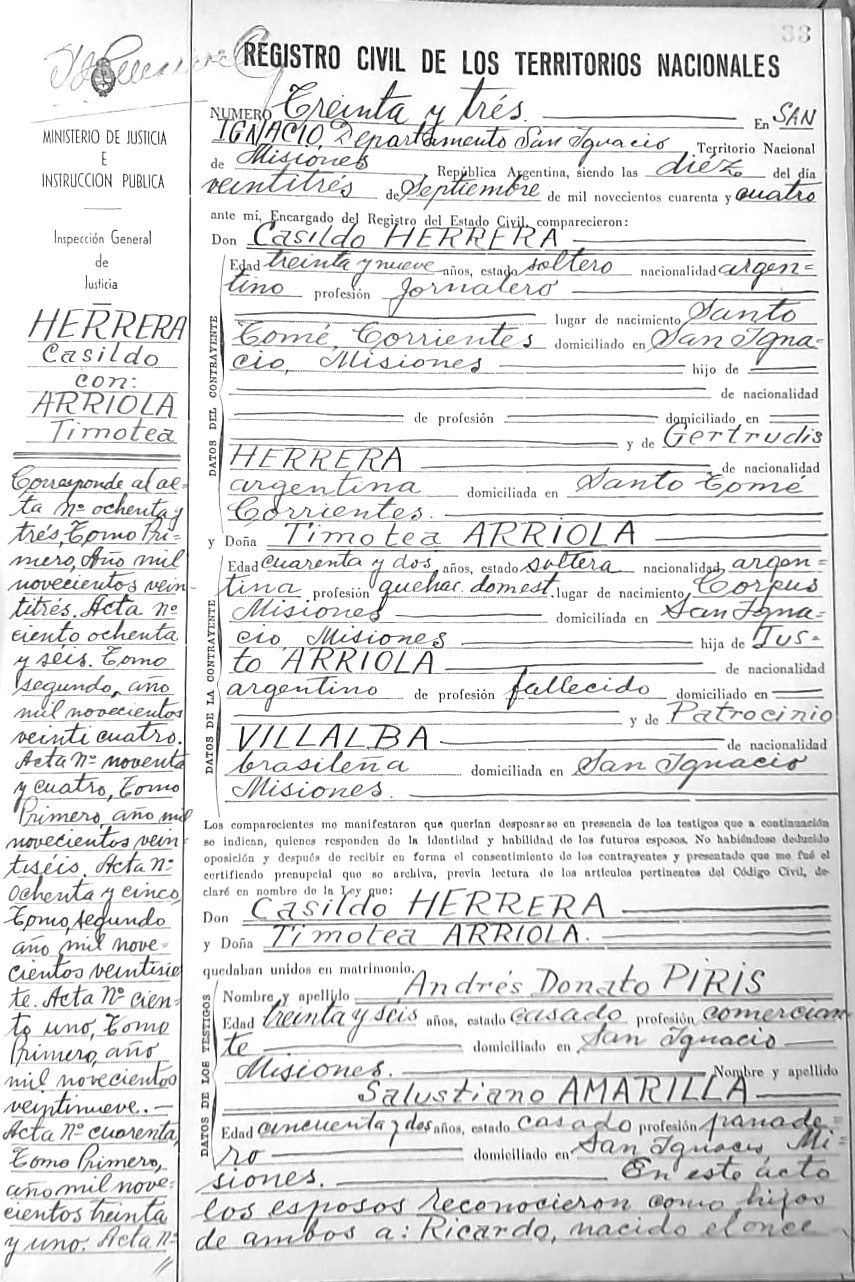 33
REGISTRO CIVIL DE LOS TERRITORIOS NACIONALES
MINISTERIO DE JUSTICIA
E
INSTRUCCION PUBLICA
Inspección General
de
Justicia
HERRERA
Casildo
con:
ARRIOLA
Timotea
Corresponde al ac-
ta Nº ochenta y
trés, Tomo Pri-
mero, Año mil
novecientos vein
titrés. Acta nº
ciento ochenta
y séis. Tomo
segundo, año
mil novecientos
veinticuatro.
Acta Nº noventa
y cuatro, Tomo
Primero, año mil
novecientos vein
tiséis. Acta Nº
Ochenta y cinco,
Tomo, segundo
año mil nove-
cientos veintisie
te. Acta Nº cien-
to uno, Tomo
Primero, año
mil novecientos
veintinueve.—
Acta Nº cuarenta,
Tomo Primero,
año mil nove-
cientos treinta
y uno. Acta Nº
NUMERO Treinta y trés. En SAN
IGNACIO, Departamento San Ignacio Territorio Nacional
de Misiones República Argentina, siendo las diéz del día
veintitrés de Septiembre de mil novecientos cuarenta y cuatro
ante mí, Encargado del Registro del Estado Civil, comparecieron:
Don Casildo HERRERA
DATOS DEL CONTRAYENTE
Edad treinta y nueve años, estado soltero nacionalidad argen-
tino profesión Jornalero
lugar de nacimiento Santo
Tomé, Corrientes domiciliado en San Igna-
cio, Misiones hijo de
de nacionalidad
de profesión domiciliado en
y de Gertrudis
HERRERA de nacionalidad
argentina domiciliada en Santo Tomé
Corrientes.
y Doña Timotea ARRIOLA
DATOS DE LA CONTRAYENTE
Edad cuarenta y dos años, estado soltera nacionalidad argen-
tina profesión quehac. domest. lugar de nacimiento Corpus
Misiones domiciliada en San Igna-
cio Misiones hija de Jus-
to ARRIOLA de nacionalidad
argentino de profesión fallecido domiciliado en
y de Patrocinio
VILLALBA de nacionalidad
brasileña domiciliada en San Ignacio
Misiones.
Los comparecientes me manifestaron que querían desposarse en presencia de los testigos que a continuación
se indican, quienes responden de la identidad y habilidad de los futuros esposos. No habiéndose deducido
oposición y después de recibir en forma el consentimiento de los contrayentes y presentado que me fué el
certificado prenupcial que se archiva, previa lectura de los artículos pertinentes del Código Civil, de-
claré en nombre de la Ley que:
Don Casildo HERRERA
y Doña Timotea ARRIOLA.
quedaban unidos en matrimonio.
DATOS DE LOS TESTIGOS
Nombre y apellido Andrés Donato PIRIS
Edad treinta y seis años, estado casado profesión comercian
te domiciliado en San Ignacio
Misiones. Nombre y apellido
Salustiano AMARILLA
Edad cincuenta y dos años, estado casado profesión panade-
ro domiciliado en San Ignacio, Mi-
siones. En este acto
los esposos reconocieron como hijos
de ambos a: Ricardo, nacido el once